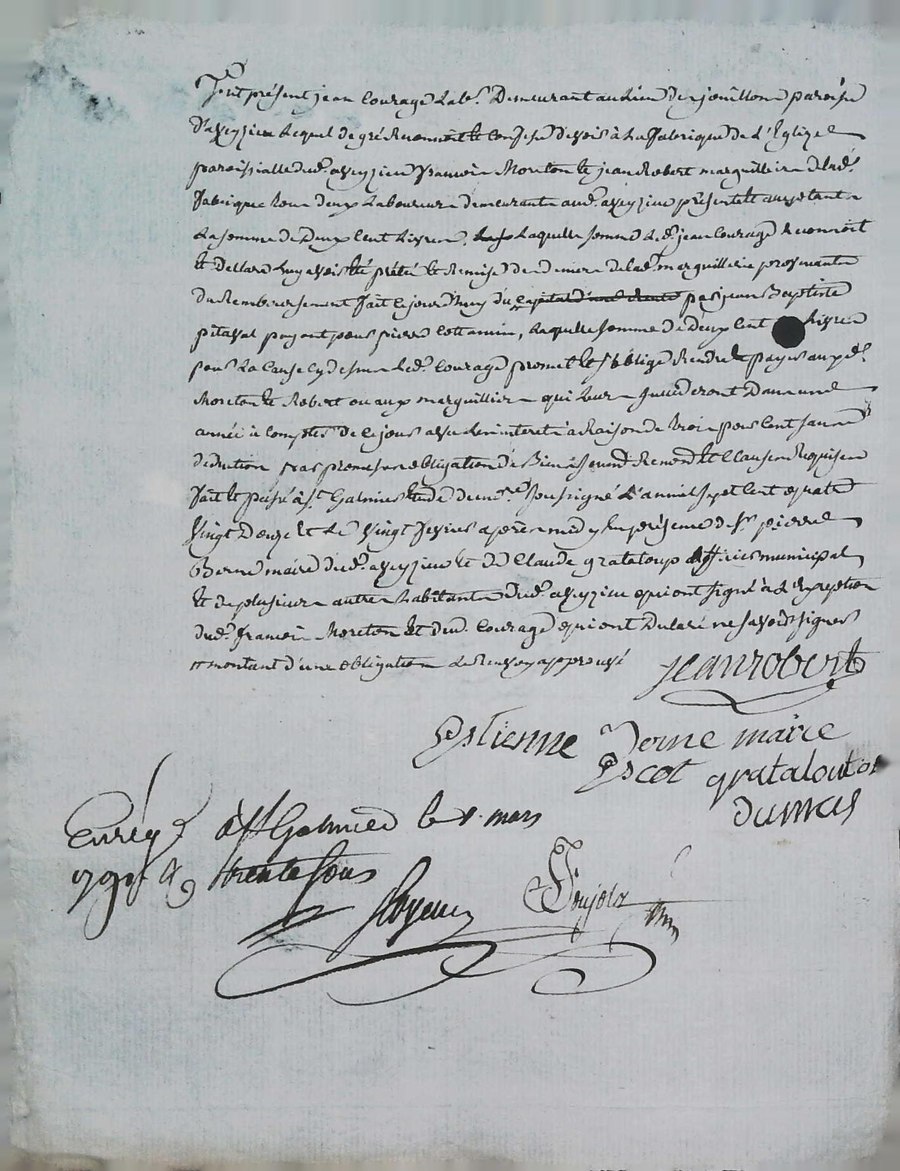 Fut présent jean Courage Lab.r Demeurant au Lieu de jouillon paroisse
d'aveyzieu Lequel de gré Reconnoit et Confesse devoir à La fabrique de L'Eglize
paroissialle dud.t aveyzieu francois Moreton et jean Robert marguilliers de lad.e
fabrique tous deux Laboureurs demeurants aud.t aveyzieu présents et acceptants
La somme de Deux Cent Livres, Laquelle somme Led.t jean Courage Reconnoit
et Declare Luy avoir été prêté et Remise des deniers de lad.e marguillerie provenants
du Remboursement fait Cejourd'huy du capital d'une rente par jean Baptiste
pitaval payant pour pierre Cottancin, Laquelle somme de Deux Cent Livres
pour La Cause Cy dessus Led.t Courage promet et s'oblige Rendre et payer auxd.t
Moreton et Robert ou aux marguilliers qui Leur succederont Dans une
année à Compter de Ce jour avec Les interets à Raison de trois pour Cent sans
deduction par promesse obligation de Biens soumis Renond et Clauses Requises
fait et passé à s.t Galmier Etude du no.re soussigné L'an mil sept Cent quatre
Vingt Douze et Le Vingt fevrier après midy En présence de s.r pierre
Verne maire dud.t aveyzieu et de Claude grataloup officier municipal
et de plusieurs autres habitants dud.t aveyzieu qui ont signé à L'Exception
dud.t francois Moreton et dud. Courage qui ont Declaré ne savoir signer
montant d'une obligation Le Renvoy approuvé
jean robert
Estienne Verne maire
Escot grataloup
dumas
Enrég.é à St Galmier le 1. mars
1792 R trente sous